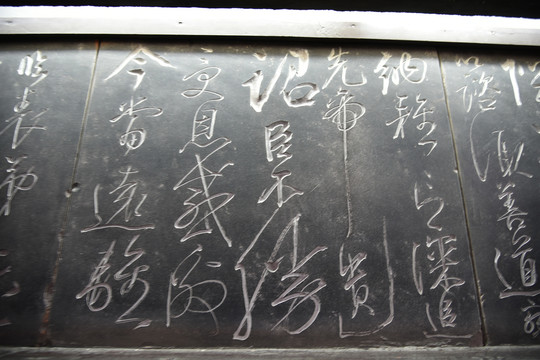 諮諏善道察
納雅言深追
先帝遺
詔臣不勝
受恩感激
今當遠離
臨表涕